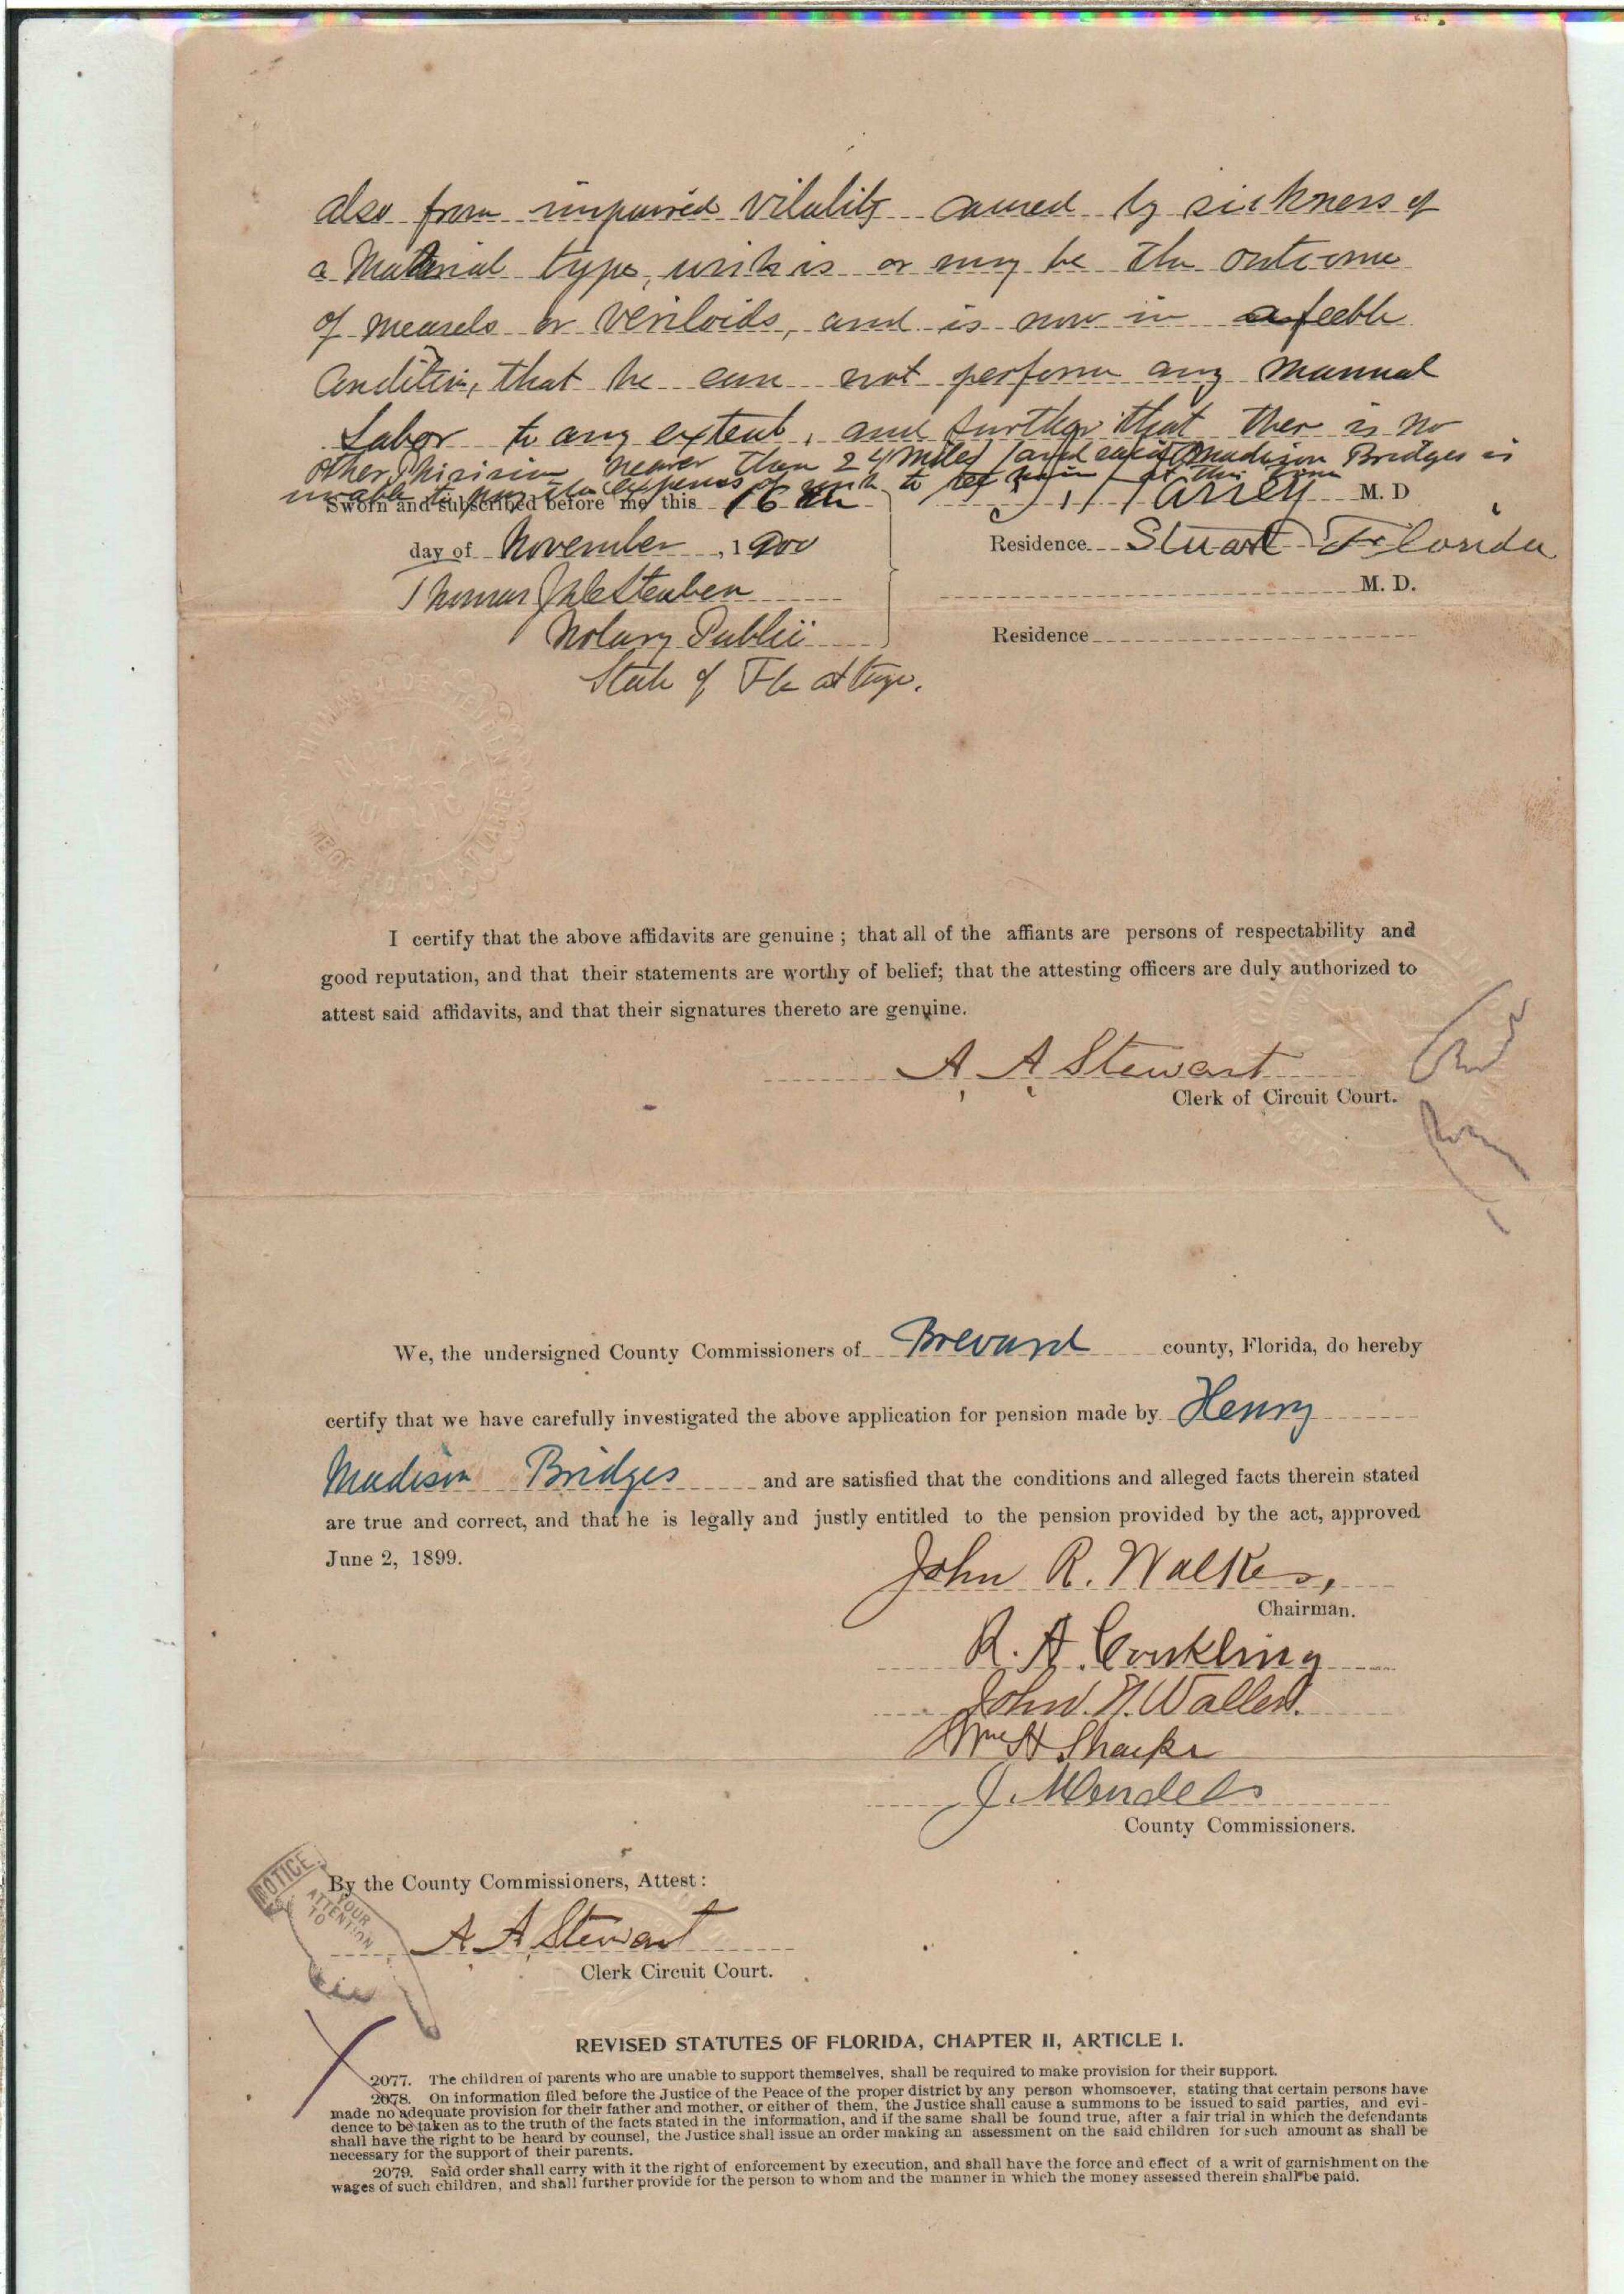 also from impaired vitality caused by sickness of
a Material type, wich is or may be the outcome
of measels or veriloids, and is now in a feeble
Condition, that he can not perform any manual
Labor to any extent, and further that ther is no
other Phisician nearer than 24 miles (and said Madison Bridges is
unable to pay the expenses of to get him at this time
Sworn and subscribed before me this 16th
M. D
day of November, 1900
Residence Stuart Florida
Thomas
M. D.
Notary Public
Residence
State of Fla at large.
I certify that the above affidavits are genuine; that all of the affiants are persons of respectability and
good reputation, and that their statements are worthy of belief; that the attesting officers are duly authorized to
attest said affidavits, and that their signatures thereto are genuine.
A. A. Stewart
Clerk of Circuit Court.
We, the undersigned County Commissioners of Brevard county, Florida, do hereby
certify that we have carefully investigated the above application for pension made by Henry
Madison Bridges and are satisfied that the conditions and alleged facts therein stated
are true and correct, and that he is legally and justly entitled to the pension provided by the act, approved
June 2, 1899.
John R. Walker,
Chairman.
R. A. Conkling
John N. Waller.
Wm H Sharpe
J. Mendel
County Commissioners.
NOTICE
YOUR
ATTENTION
TO
By the County Commissioners, Attest:
A. A. Stewart
Clerk Circuit Court.
REVISED STATUTES OF FLORIDA, CHAPTER II, ARTICLE I.
2077. The children of parents who are unable to support themselves, shall be required to make provision for their support.
2078. On information filed before the Justice of the Peace of the proper district by any person whomsoever, stating that certain persons have
made no adequate provision for their father and mother, or either of them, the Justice shall cause a summons to be issued to said parties, and evi-
dence to be taken as to the truth of the facts stated in the information, and if the same shall be found true, after a fair trial in which the defendants
shall have the right to be heard by counsel, the Justice shall issue an order making an assessment on the said children for such amount as shall be
necessary for the support of their parents.
2079. Said order shall carry with it the right of enforcement by execution, and shall have the force and effect of a writ of garnishment on the
wages of such children, and shall further provide for the person to whom and the manner in which the money assessed therein shall be paid.